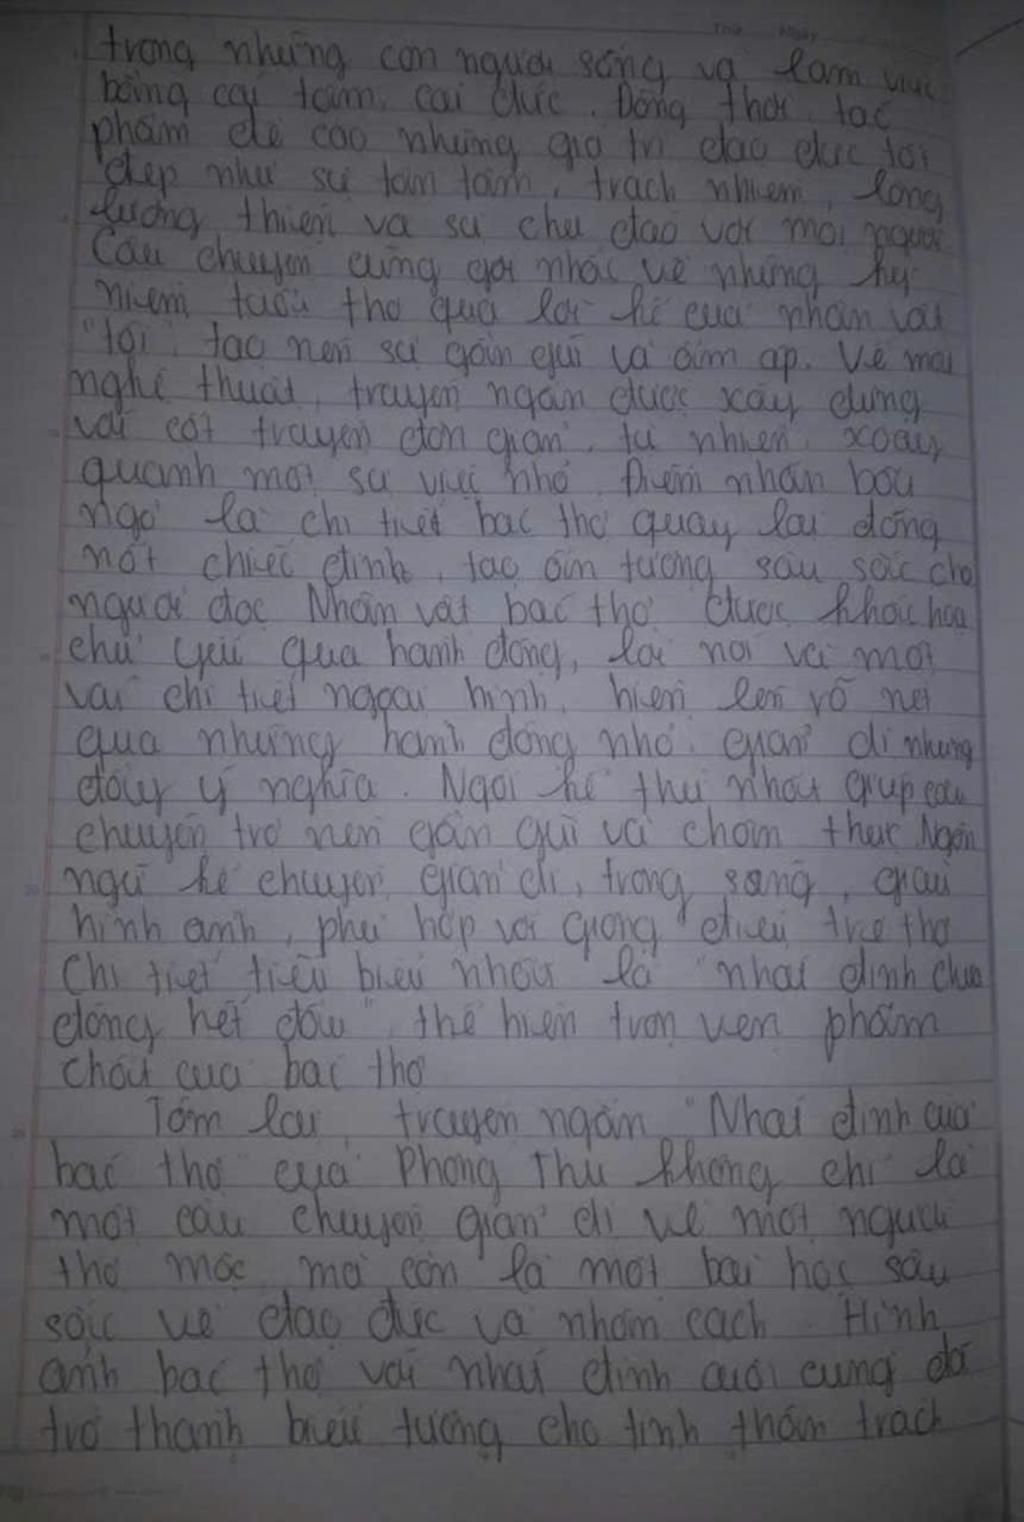 Thứ Ngày
trọng những con người sống và làm việc
bằng cái tâm, cái đức. Đồng thời, tác
phẩm đề cao những giá trị đạo đức tốt
đẹp như sự tận tâm, trách nhiệm, lòng
lương thiện và sự chu đáo với mọi người.
Câu chuyện cũng gợi nhắc về những kỷ
niệm tuổi thơ qua lời kể của nhân vật
"tôi", tạo nên sự gần gũi và ấm áp. Về mặt
nghệ thuật, truyện ngắn được xây dựng
với cốt truyện đơn giản, tự nhiên, xoay
quanh một sự việc nhỏ. Điểm nhấn bất
ngờ là chi tiết bác thợ quay lại đóng
nốt chiếc đinh, tạo ấn tượng sâu sắc cho
người đọc. Nhân vật bác thợ được khắc họa
chủ yếu qua hành động, lời nói và một
vài chi tiết ngoại hình, hiện lên rõ nét
qua những hành động nhỏ, giản dị nhưng
đầy ý nghĩa. Ngôi kể thứ nhất giúp câu
chuyện trở nên gần gũi và chân thực. Ngôn
ngữ kể chuyện giản dị, trong sáng, giàu
hình ảnh, phù hợp với giọng điệu trẻ thơ
Chi tiết tiêu biểu nhất là "nhát đinh chưa
đóng hết đâu" thể hiện trọn vẹn phẩm
chất của bác thợ
Tóm lại, truyện ngắn "Nhát đinh của
bác thợ" của Phong Thu không chỉ là
một câu chuyện giản dị về một người
thợ mộc mà còn là một bài học sâu
sắc về đạo đức và nhân cách. Hình
ảnh bác thợ với nhát đinh cuối cùng đã
trở thành biểu tượng cho tinh thần trách